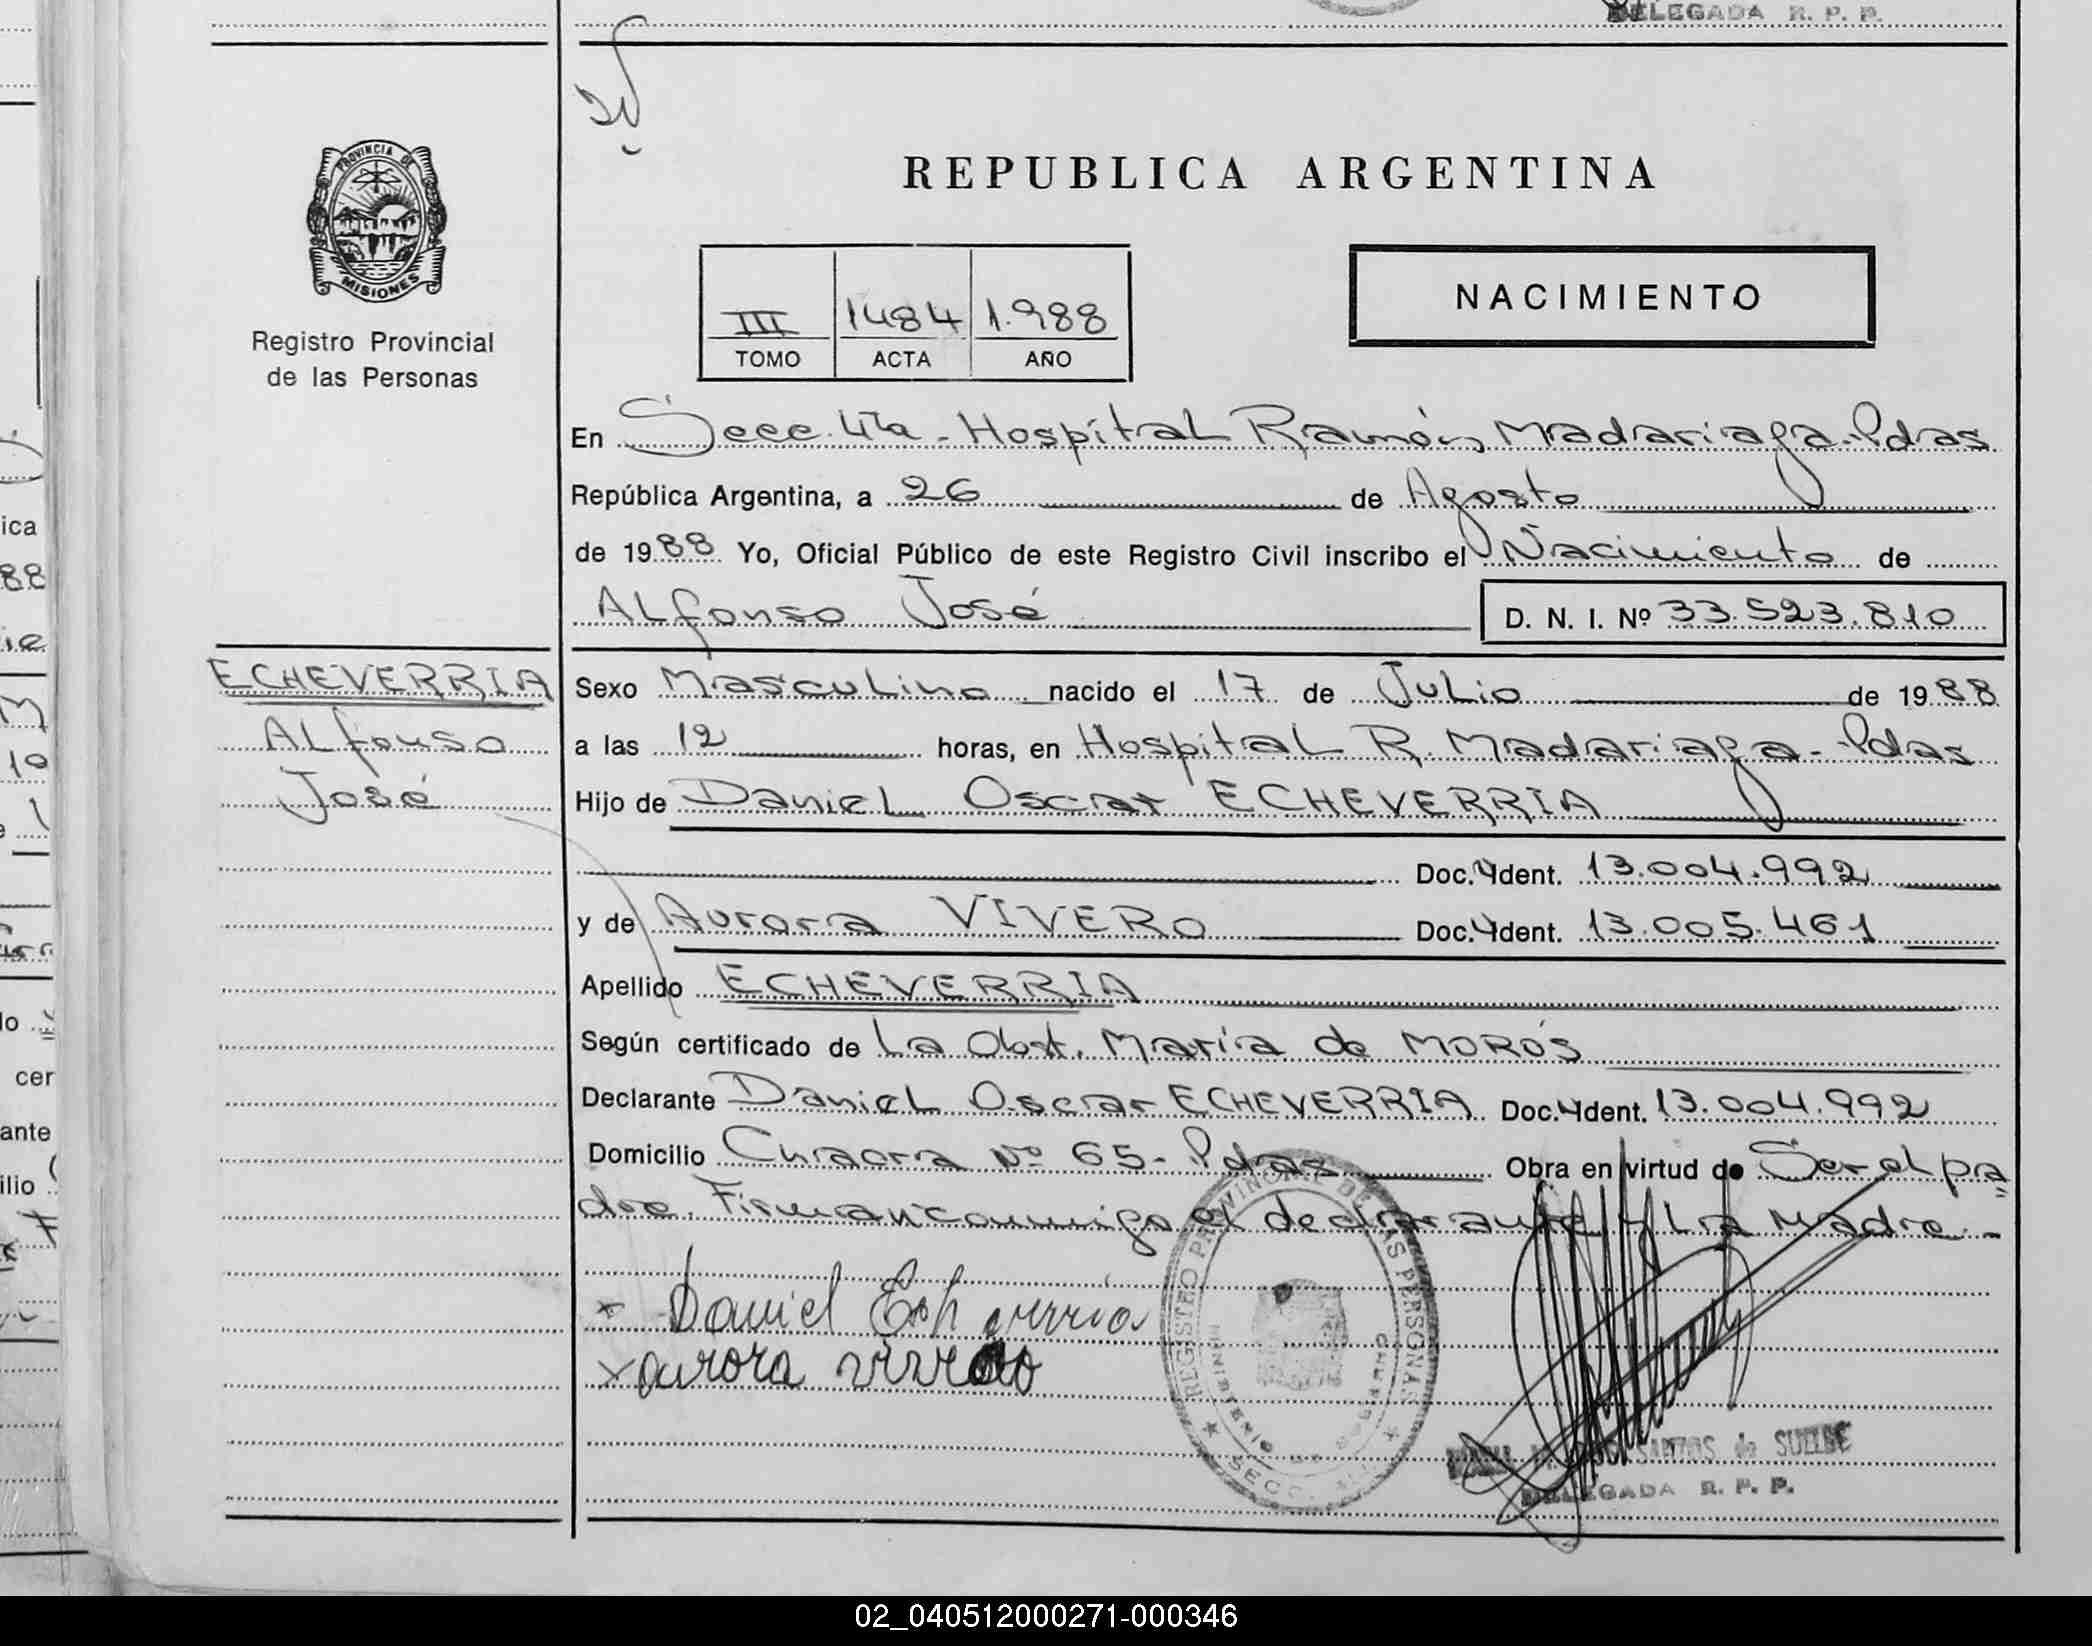 DELEGADA R. P. P.
PROVINCIA DE
MISIONES
Registro Provincial
de las Personas
REPUBLICA ARGENTINA
NACIMIENTO
III 1484 1.988
TOMO ACTA AÑO
En Secc. 4ta - Hospital Ramón Madariaga - Pdas
República Argentina, a 26 de Agosto
de 1988 Yo, Oficial Público de este Registro Civil inscribo el Nacimiento de
Alfonso José D. N. I. Nº 33.523.810
ECHEVERRIA
Alfonso
José
Sexo Masculino nacido el 17 de Julio de 1988
a las 12 horas, en Hospital R. Madariaga - Pdas
Hijo de Daniel Oscar ECHEVERRIA
Doc. Ident. 13.004.992
y de Aurora VIVERO Doc. Ident. 13.005.461
Apellido ECHEVERRIA
Según certificado de La Obst. María de MOROS
Declarante Daniel Oscar ECHEVERRIA Doc. Ident. 13.004.992
Domicilio Nº 65 - Pdas Obra en virtud de Ser el pa=
dre. Firman conmigo el declarante y La Madre. -
x Daniel Echeverria
x aurora vivero
REGISTRO PROVINCIAL DE LAS PERSONAS
MINISTERIO DE GOBIERNO
SECC.
SANTOS de
DELEGADA R. P. P.
02_040512000271-000346